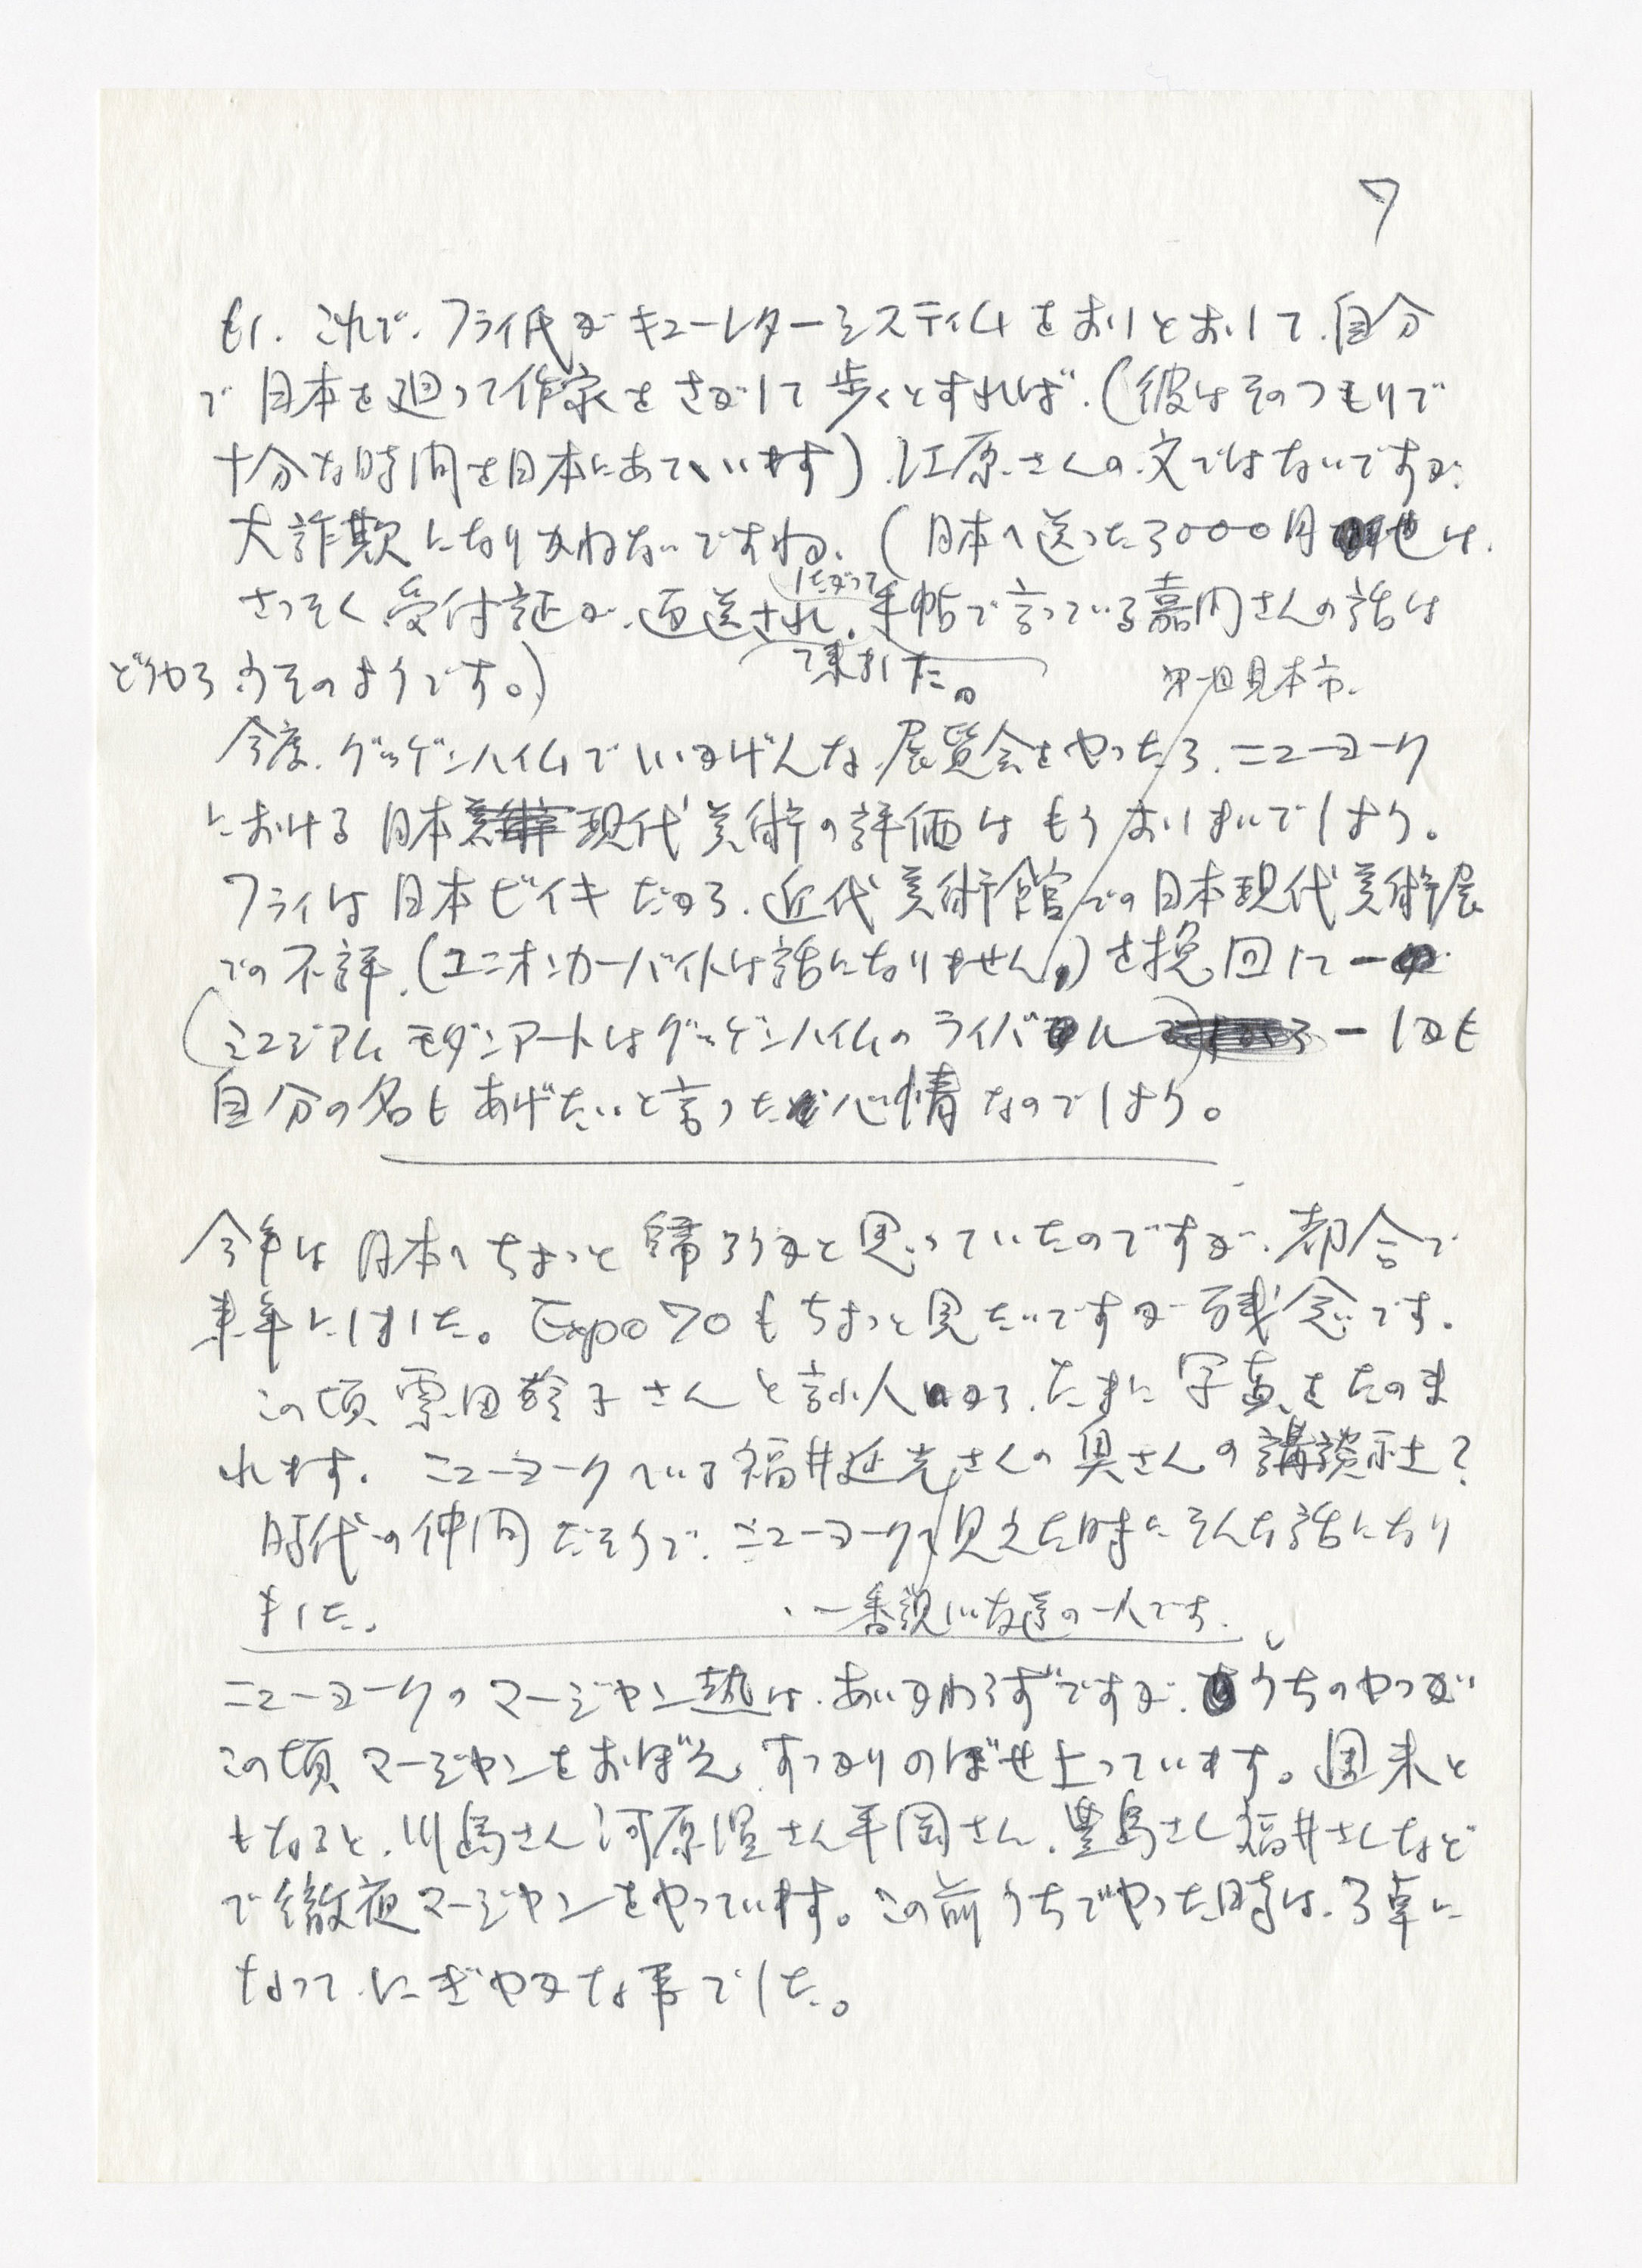 7
もし、これで、フライ氏がキューレターシスティムをおしとおして、自分
で日本を廻って作家をさがして歩くとすれば、(彼はそのつもりで
十分な時間を日本にあてています)、江原さんの文ではないですが、
大詐欺になりかねないですね。(日本へ送った3000円也は、
さっそく受付証が、返送され、手帖で言っている嘉門さんの話は
したがって
て来ました。
どうやらうそのようです。)
第一回見本市、
今度、グッゲンハイムでいいかげんな展覧会をやったら、ニューヨーク
における日本現代美術の評価はもうおしまいでしょう。
フライは日本ビイキだから、近代美術館での日本現代美術展
での不評、(ユニオンカーバイトは話になりません。)を挽回して―
(ミュジアムモダンアートはグッゲンハイムのライバル)―しかも
自分の名もあげたいと言った心情なのでしょう。
今年は日本へちょっと帰ろうかと思っていたのですが、都合で
来年にしました。Expo 70もちょっと見たいですが残念です。
この頃 田 子さんと言ふ人から、たまに写真をたのま
れます。ニューヨークへいる福井延光さんの奥さんの講談社?
時代の仲間だそうで、ニューヨークへ見えた時にそんな話になり
ました。
一番親しい友達の一人です。
ニューヨークのマージャン熱は、あいかわらずですが、うちのやつが
この頃マージャンをおぼえ、すっかりのぼせ上っています。週末と
もなると、川島さん河原温さん平岡さん、豊島さん福井さんなど
で徹夜マージャンをやっています。この前うちでやった時は、3卓に
なって、にぎやかな事でした。